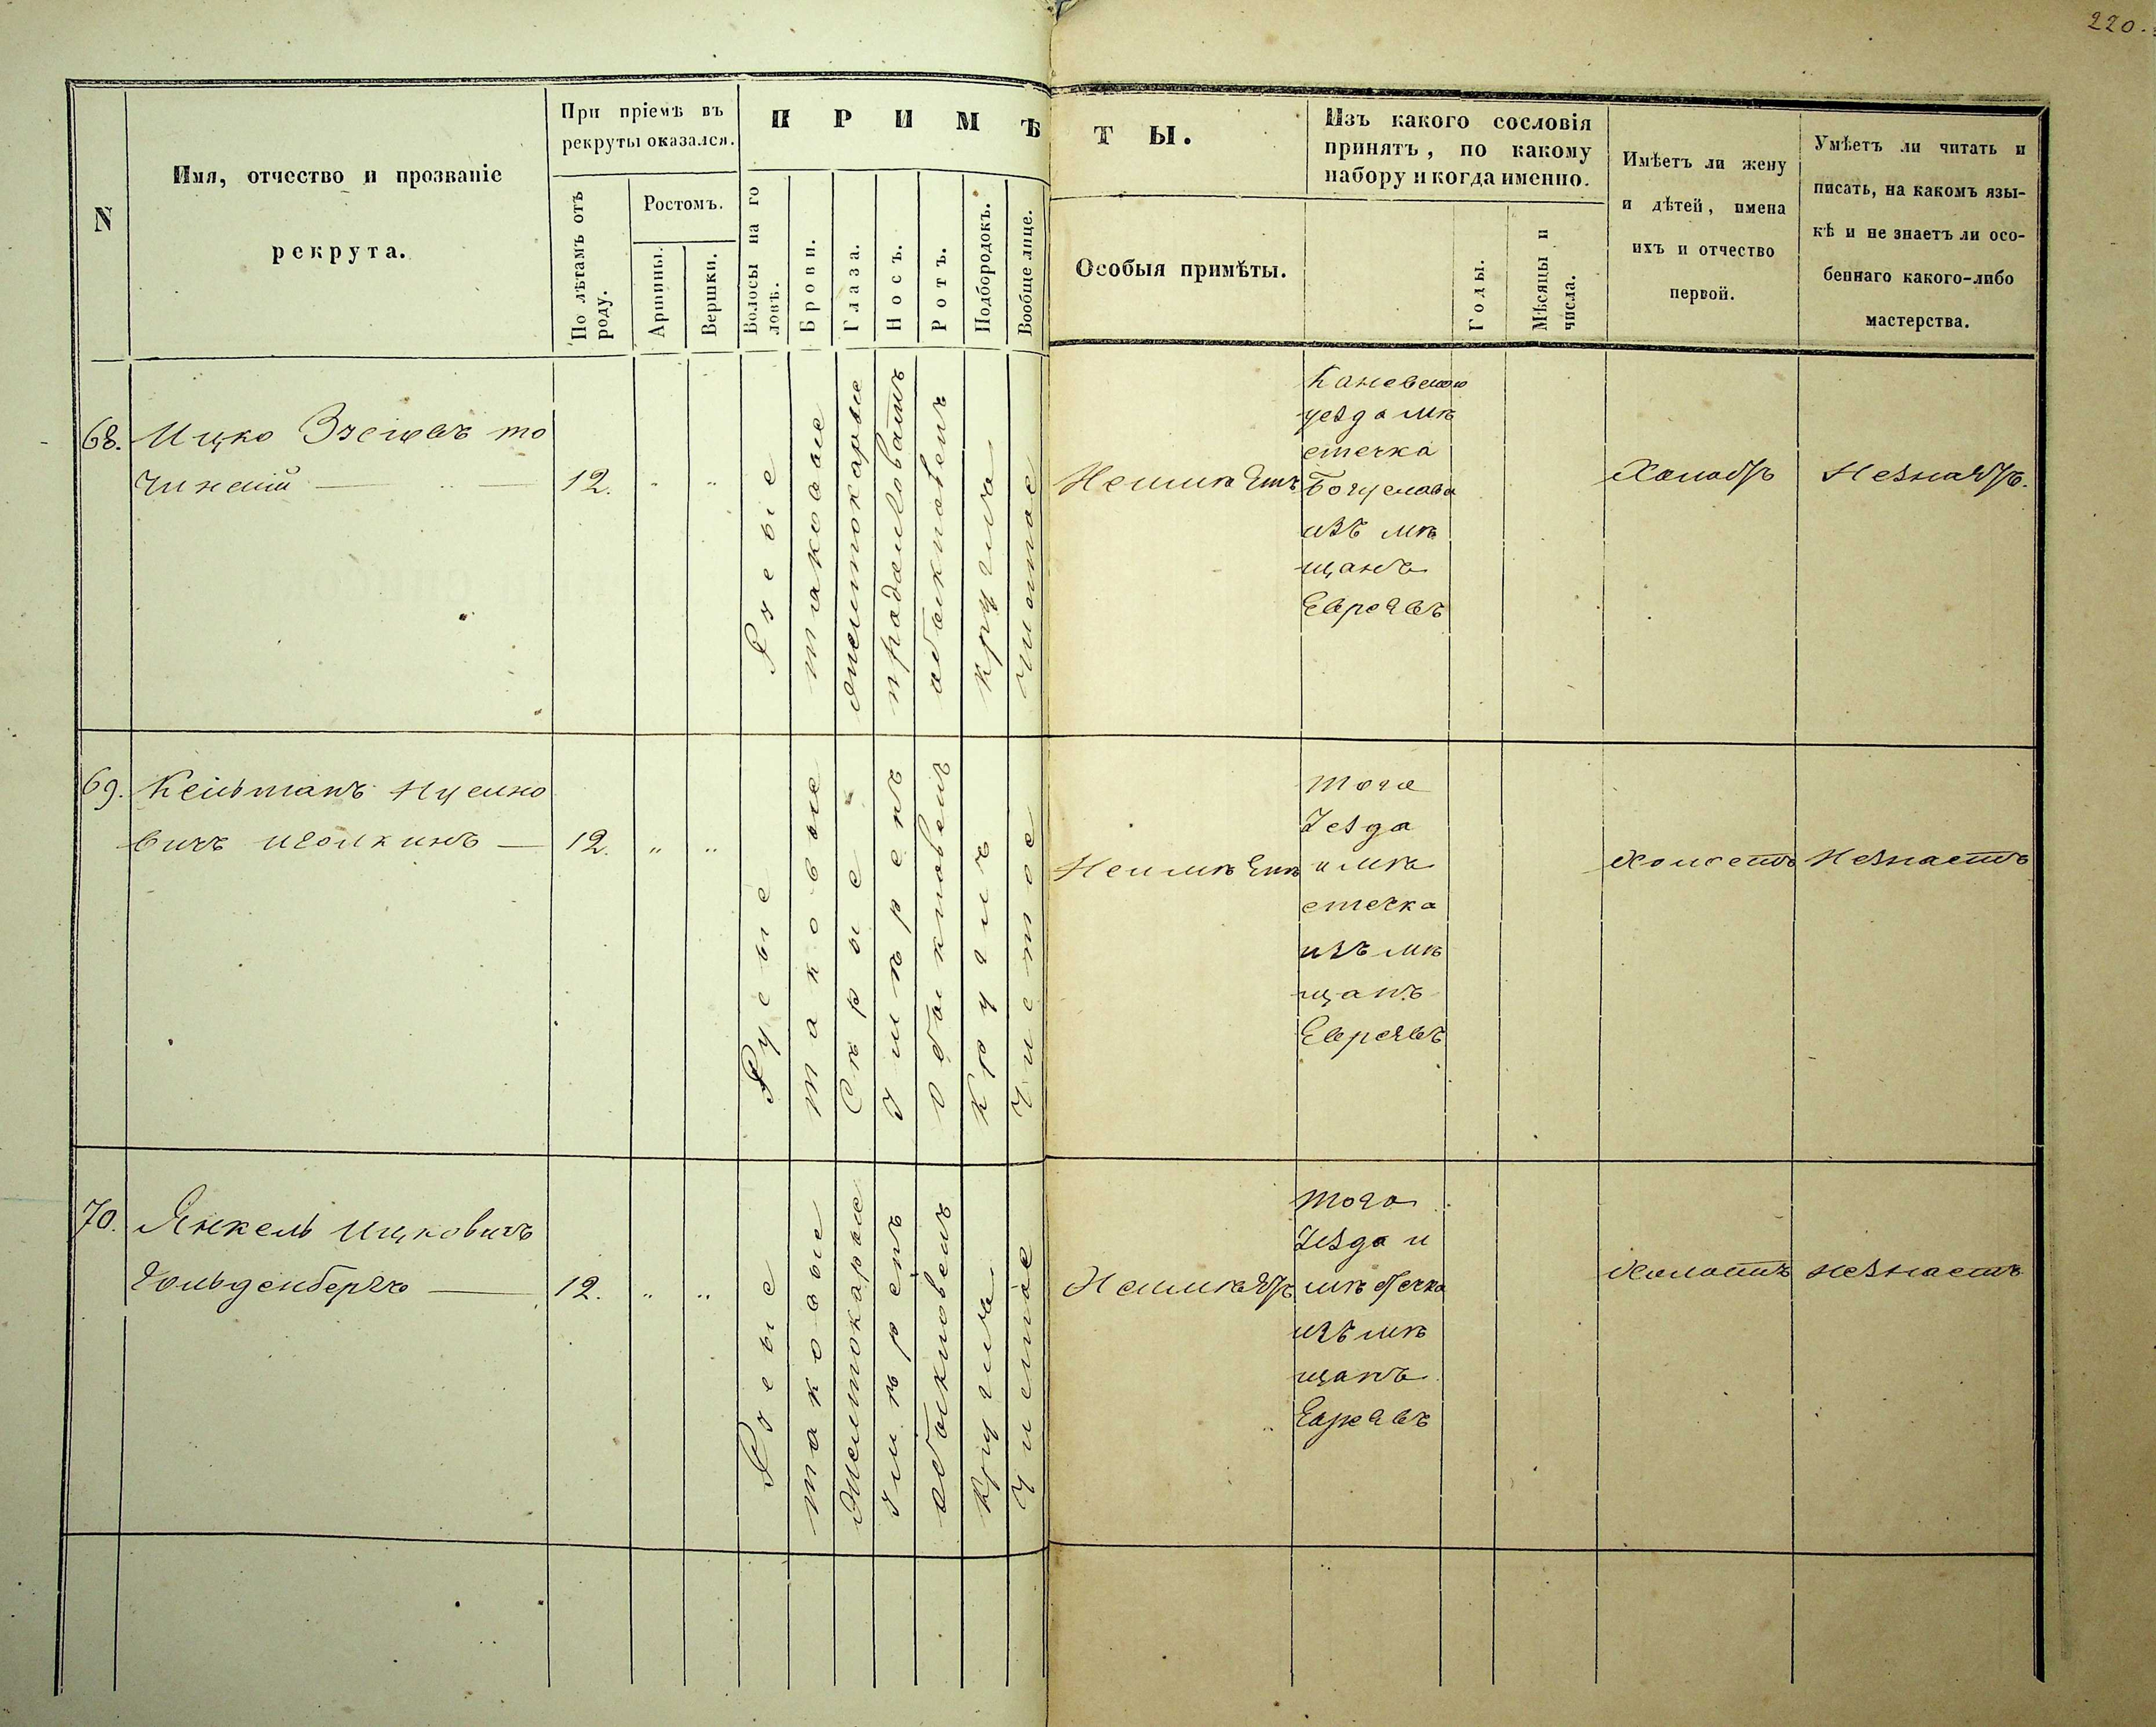 220.
N
Имя, отчество и прозваніе
рекрута.
При пріемѣ въ
рекруты оказался.
По лѣтамъ отъ
роду.
Ростомъ.
Аршины.
Вершки.
ПРИМѢ
ТЫ.
Волосы на го
ловѣ.
Брови.
Глаза.
Носъ.
Ротъ.
Подбородокъ.
Вообще лице.
Особыя примѣты.
Изъ какого сословія
принятъ, по какому
набору и когда именно.
Годы.
Мѣсяцы и
числа.
Имѣетъ ли жену
и дѣтей, имена
ихъ и отчество
первой.
Умѣетъ ли читать и
писать, на какомъ язы-
кѣ и не знаетъ ли осо-
беннаго какого-либо
мастерства.
68.
Ицко
то
чинскій
12.
" "
таковые
обыкновен
кругла
Чистое
Каневскаго
уезда мѣ
стечка
Богуслава
изъ мѣ
щанъ
Евреевъ
Холостъ
Незнаетъ.
69.
Кельманъ
вичъ
12.
" "
Русые
таковые
Сѣрые
умѣренъ
обыкновен
кругла
Чистое
Неимѣетъ
того
Уезда
и мѣ
стечка
изъ мѣ
щанъ
Евреевъ
Холостъ
Незнаетъ
70.
Янкель Ицковичъ
Гольденбергъ
12.
" "
таковые
умѣренъ
обыкновен
кругла
Чистое
Неимѣетъ
того
Уезда и
мѣстечка
изъ мѣ
щанъ
Евреевъ
Холостъ
незнаетъ